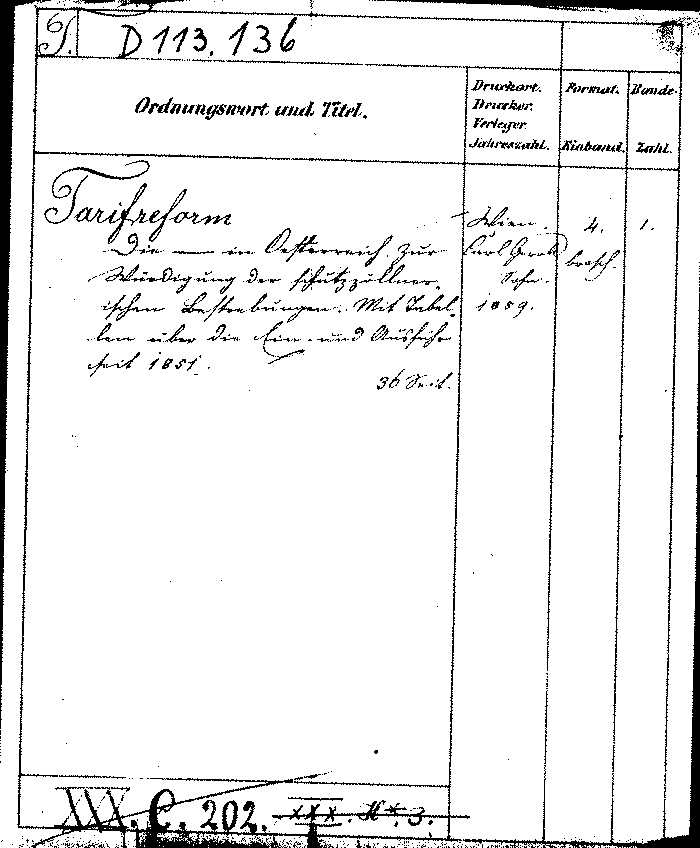 T. D 113.136
Ordnungswort und Titel.
Druckort.
Drucker.
Verleger
Jahreszahl.
Format.
Einband.
Bände-
Zahl.
Tarifreform
Die — in Oesterreich. Zur
Würdigung der schutzzöllner-
ischen Bestrebungen. Mit Tabel-
len über die Ein- und Ausfuhr
seit 1851.
36 Seit.
Wien.
Carl Gerold
Sohn.
1859.
4.
brosch.
1.
XXX. C. 202. XXX. H*. 3.